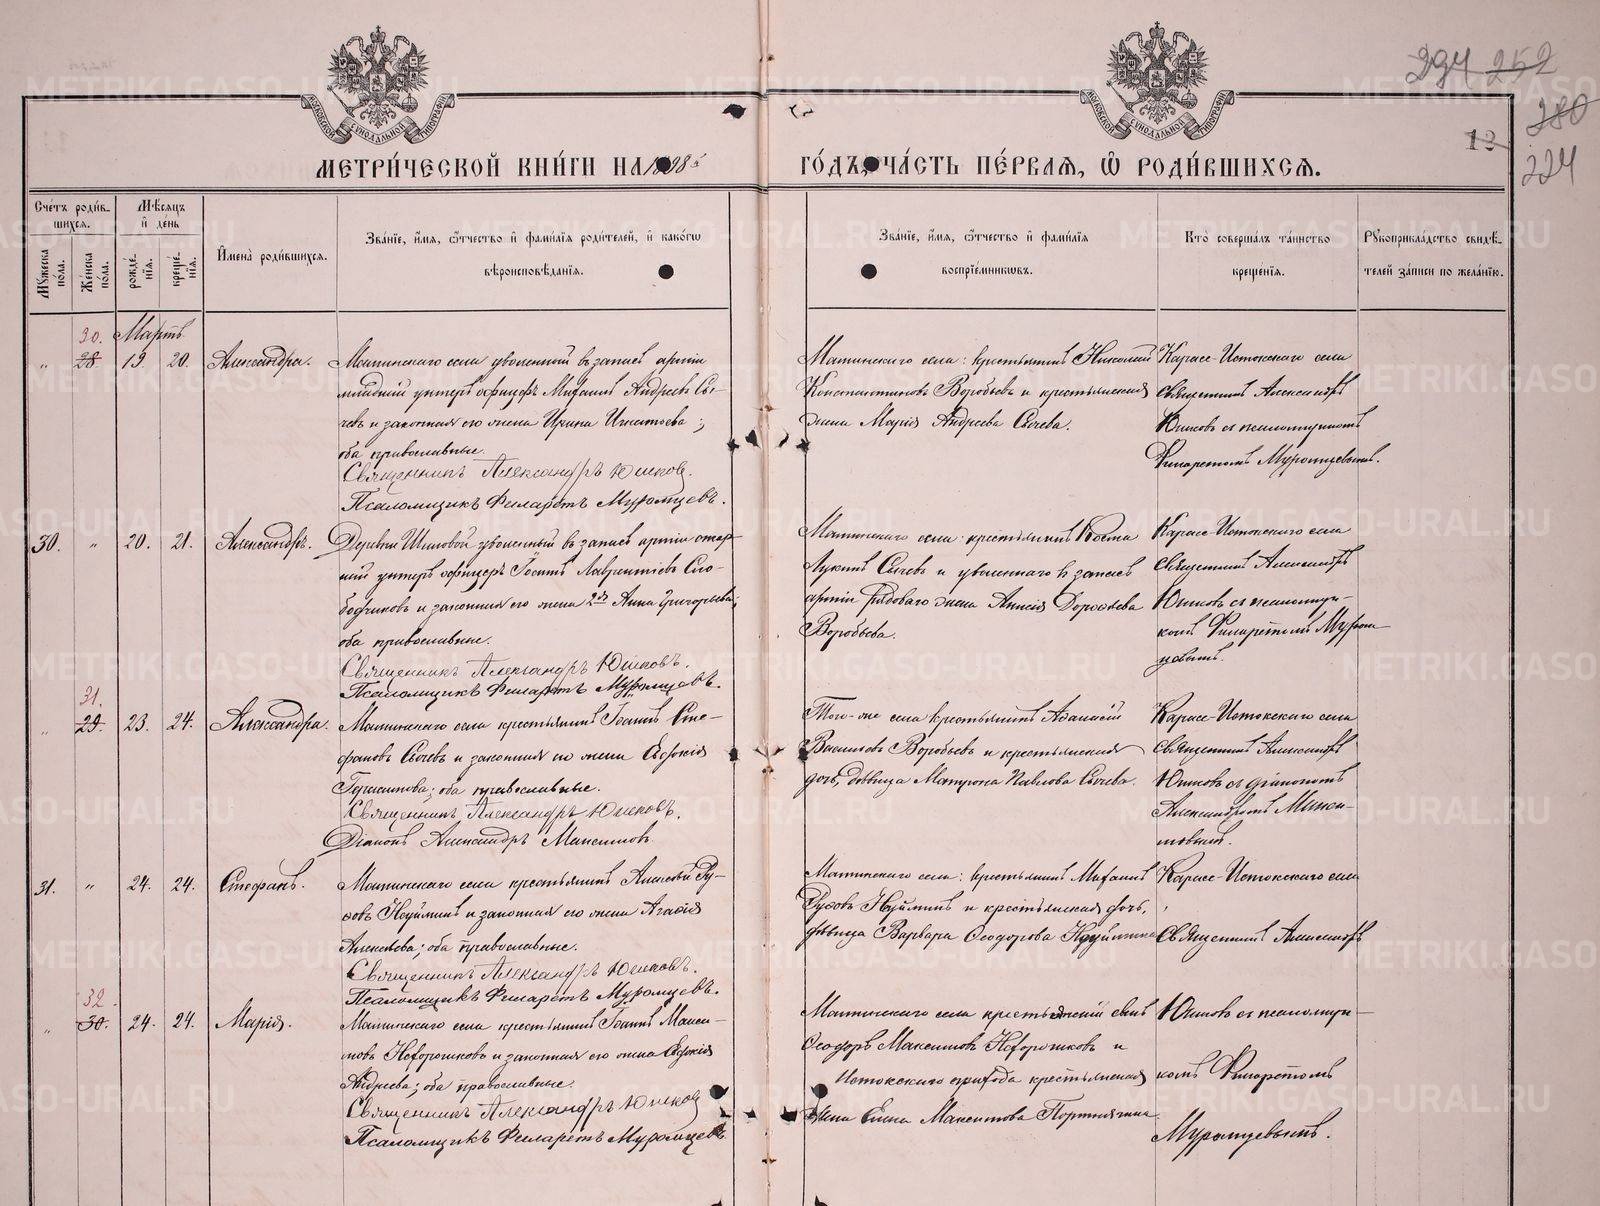 294 252
280
224
13
МОСКОВСКОЙ СѴНОДАЛЬНОЙ ТИПОГРАФІИ
МОСКОВСКОЙ СѴНОДАЛЬНОЙ ТИПОГРАФІИ
МЕТРИ́ЧЕСКОЙ КНИ́ГИ НА 1898
ГО́ДЪ, ЧА́СТЬ ПЕ́РВАЯ, Ѡ РОДИ́ВШИХСЯ.
Сче́тъ роди́в-
шихся.
Мꙋ́жеска по́ла.
Же́нска по́ла.
Мѣ́сяцъ и де́нь
рожде́-нїя.
креще́-нїя.
Имена̀ роди́вшихся.
Зва́нїе, и́мя, ѻ́тчество и фами́лїя роди́телей, и како́гѡ
вѣроисповѣ́данїя.
Зва́нїе, и́мя, ѻ́тчество и фами́лїя
воспрїе́мниковъ.
Кто̀ соверша́лъ та́инство
креще́нїя.
Рꙋкоприкла́дство свидѣ́-
телей за́писи по жела́нїю.
Мартъ
30.
" 28 19. 20. Александра.
Маминскаго села уволенный въ запасъ арміи
младшій унтеръ офицеръ Михаилъ Андреевъ Сы-
чевъ и законная его жена Ирина Игнатьева;
оба православные.
Священникъ Александръ Юшковъ.
Псаломщикъ Филаретъ Муромцевъ.
Маминскаго села: крестьянинъ Николай
Константиновъ Воробьевъ и крестьянская
жена Марія Андреева Сычева.
Карасье-Истокскаго села
священникъ Александръ
Юшковъ съ псаломщикомъ
Филаретомъ Муромцевымъ.
30. " 20. 21. Александръ.
Деревни Шиловой уволенный въ запасъ арміи стар-
шій унтеръ офицеръ Іоаннъ Лаврентіевъ Сло-
бодчиковъ и законная его жена 2я Анна Григорьева;
оба православные.
Священникъ Александръ Юшковъ.
Псаломщикъ Филаретъ Муромцевъ.
Маминскаго села: крестьянинъ Косма
Лукинъ Сычевъ и уволеннаго въ запасъ
арміи рядоваго жена Анисія Дороѳеева
Воробьева.
Карасье-Истокскаго села
священникъ Александръ
Юшковъ съ псаломщи-
комъ Филаретомъ Муром-
цевымъ.
31.
" 29. 23. 24. Александра.
Маминскаго села крестьянинъ Іоаннъ Сте-
фановъ Сычевъ и законная его жена Евдокія
оба православные.
Священникъ Александръ Юшковъ.
Діаконъ Александръ Максимовъ
Того-же села крестьянинъ Аѳанасій
Васильевъ Воробьевъ и крестьянская
дочь, дѣвица Матрона Павлова Сычева.
Карасье-Истокскаго села
священникъ Александръ
Юшковъ съ діакономъ
Александромъ Макси-
мовымъ.
31. " 24. 24. Стефанъ.
Маминскаго села крестьянинъ Алексѣй Ѳу-
довъ Нуйминъ и законная его жена Агаѳія
Алексѣева; оба православные.
Священникъ Александръ Юшковъ.
Псаломщикъ Филаретъ Муромцевъ.
Маминскаго села: крестьянинъ Михаилъ
Нуйминъ и крестьянская дочь,
дѣвица Варвара Ѳеодорова Нуймина
Карасье-Истокскаго села
священникъ Александръ
32
" 30. 24. 24. Марія.
Маминскаго села крестьянинъ Іоаннъ Макси-
мовъ Нехорошковъ и законная его жена Евдокія
Андреева; оба православные.
Священникъ Александръ Юшковъ
Псаломщикъ Филаретъ Муромцевъ
Маминскаго села крестьянскій сынъ
Ѳеодоръ Максимовъ Нехорошковъ и
Истокскаго прихода крестьянская
жена Елена Максимова Портнягина
Юшковъ съ псаломщи-
комъ Филаретомъ
Муромцевымъ.
METRIKI.GASO-URAL.RU